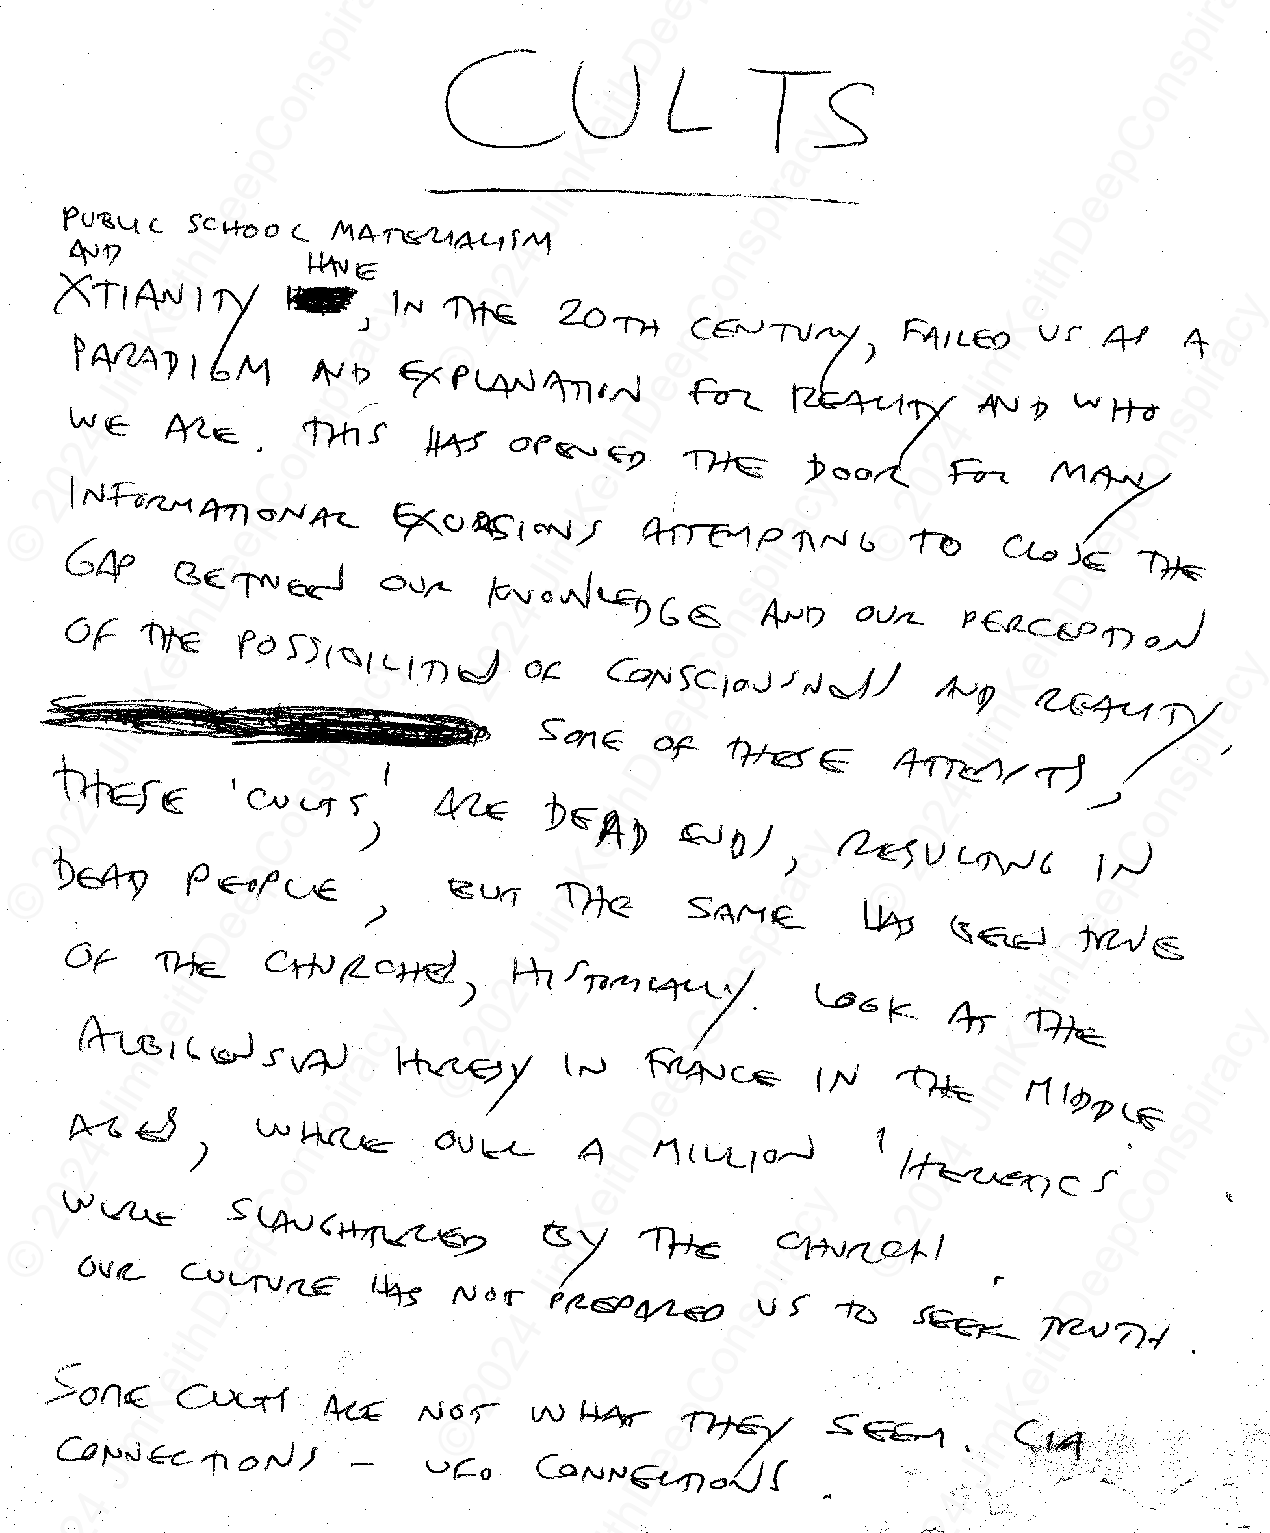 CULTS
PUBLIC SCHOOL MATERIALISM
AND HAVE
XTIANITY , IN THE 20TH CENTURY, FAILED US AS A
PARADIGM AND EXPLANATION FOR REALITY AND WHO
WE ARE. THIS HAS OPENED THE DOOR FOR MANY
INFORMATIONAL EXCURSIONS ATTEMPTING TO CLOSE THE
GAP BETWEEN OUR KNOWLEDGE AND OUR PERCEPTION
OF THE POSSIBILITIES OF CONSCIOUSNESS AND REALITY.
SOME OF THESE ATTEMPTS,
THESE 'CULTS,' ARE DEAD ENDS, RESULTING IN
DEAD PEOPLE, BUT THE SAME HAS BEEN TRUE
OF THE CHURCHES, HISTORICALLY. LOOK AT THE
ALBIGENSIAN HERESY IN FRANCE IN THE MIDDLE
AGES, WHERE OVER A MILLION 'HERETICS'
WERE SLAUGHTERED BY THE CHURCH.
OUR CULTURE HAS NOT PREPARED US TO SEEK TRUTH.
SOME CULTS ARE NOT WHAT THEY SEEM. CIA
CONNECTIONS - UFO CONNECTIONS.
© 2024 JimKeithDeepConspiracy